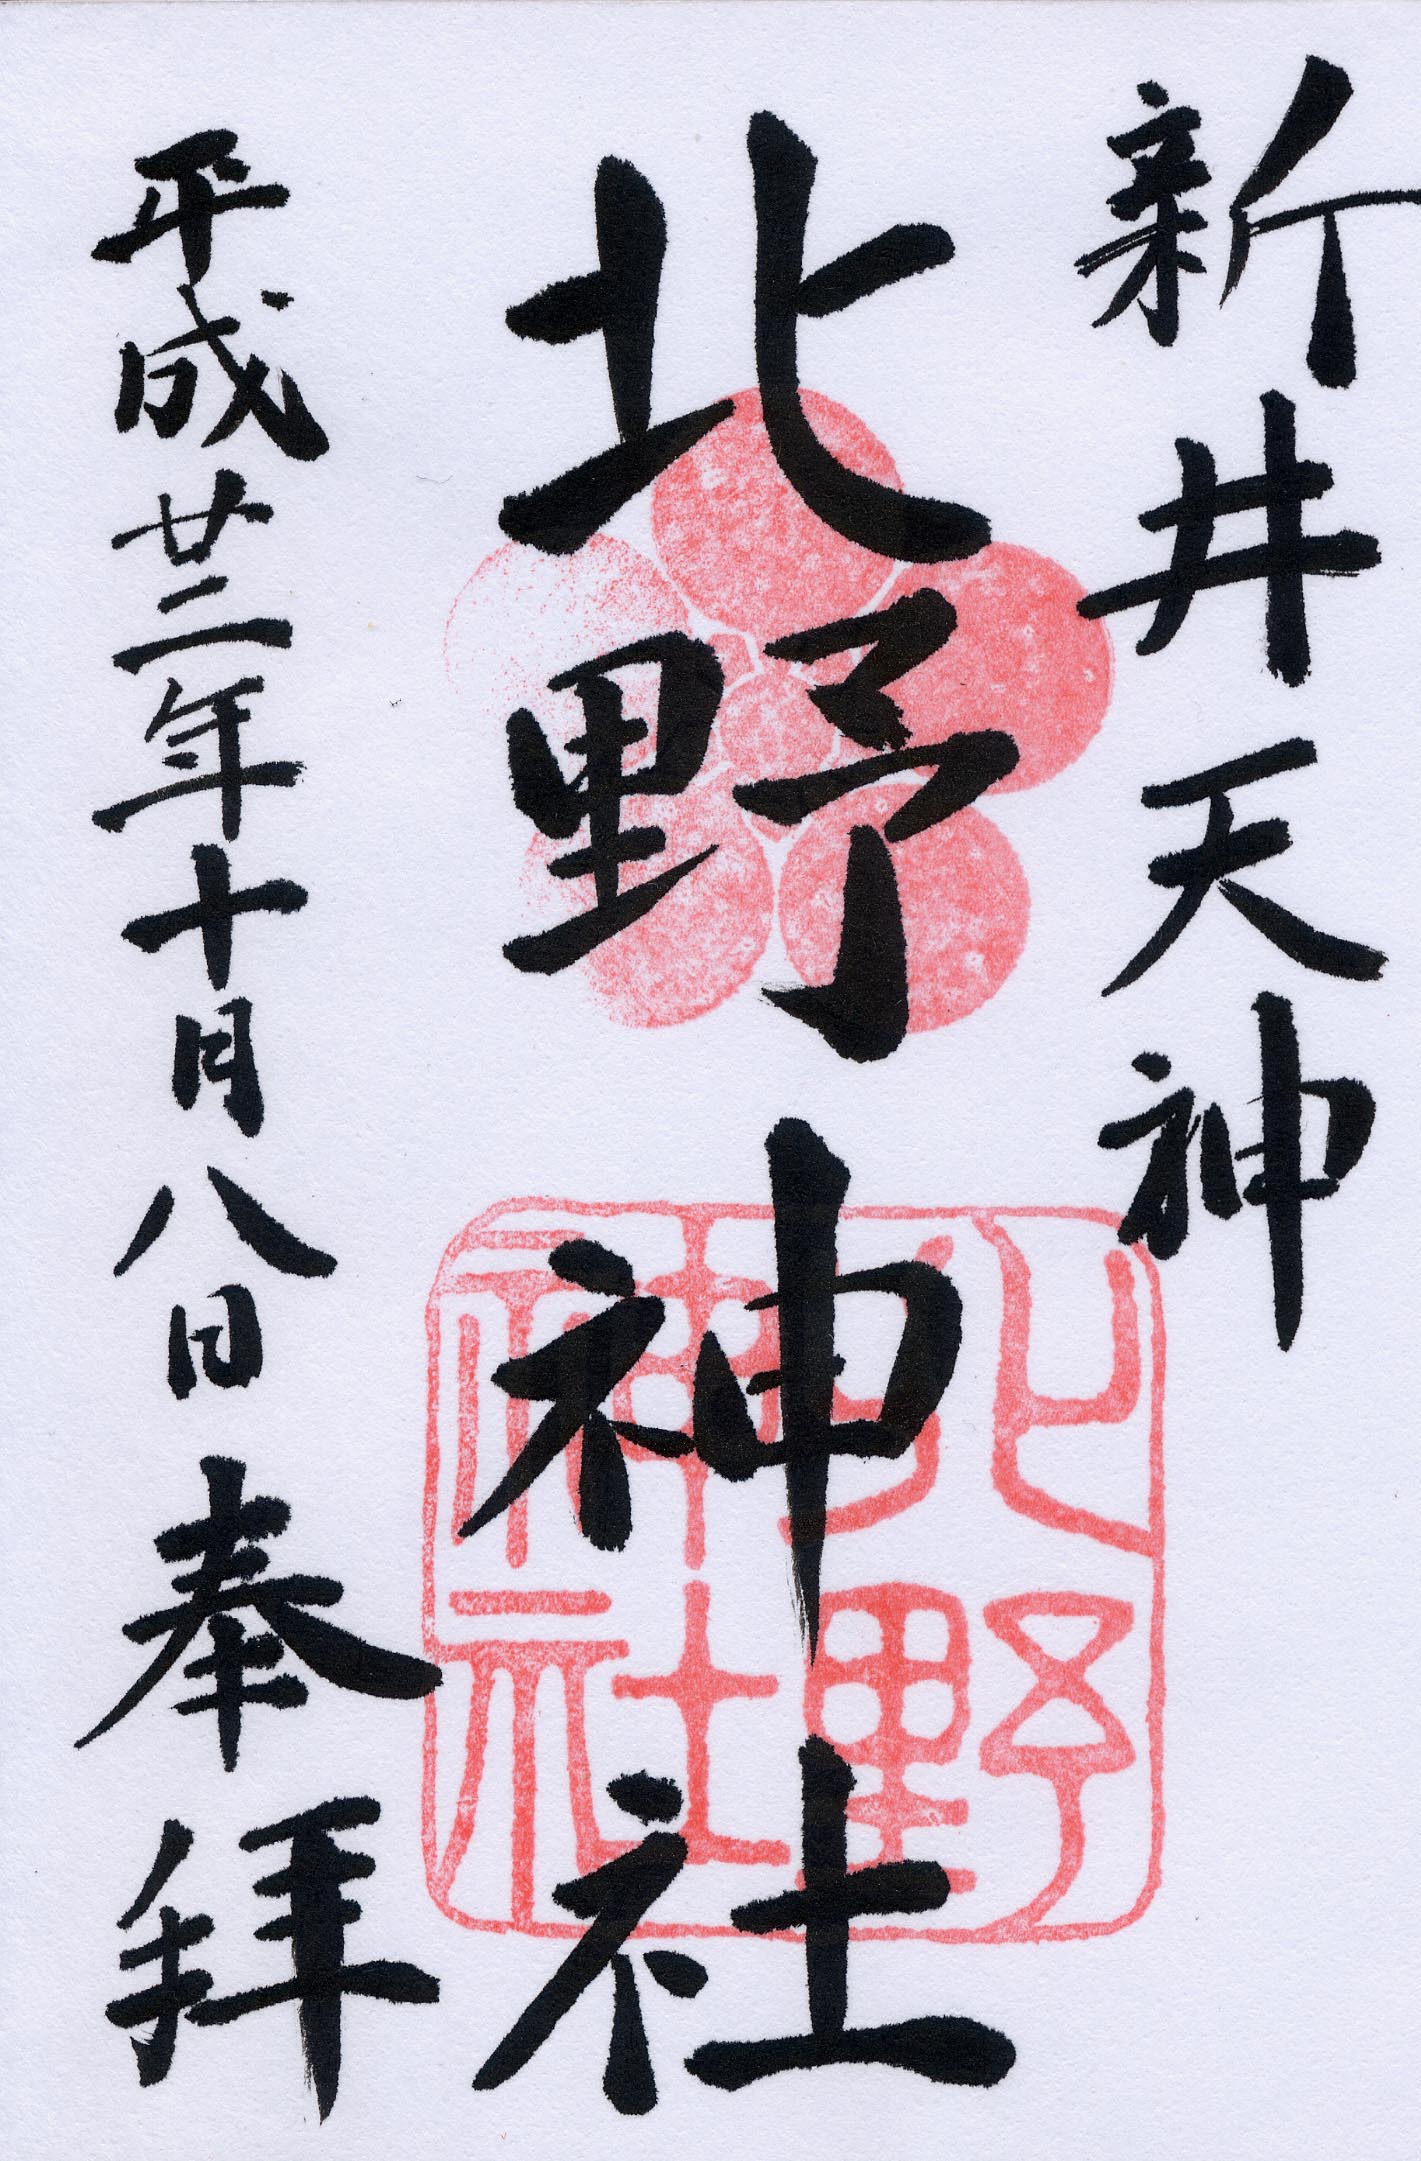 新井天神
北野神社
北野
神社
平成廿二年十月八日奉拝